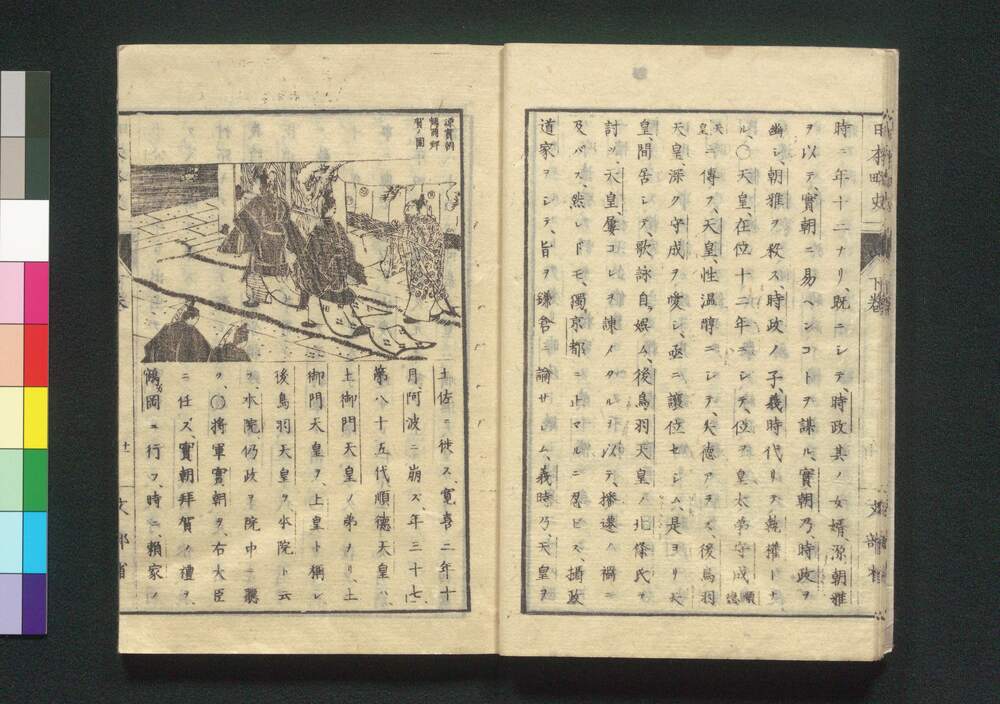 日本略史 下卷 文部省
時ニ年十二ナリ、既ニシテ時政其ノ女婿、源朝雅
ヲ以テ、實朝ニ易ヘンコトヲ謀ル、實朝乃、時政ヲ
幽シ、朝雅ヲ殺ス、時政ノ子、義時代リテ執權トナ
ル、〇天皇、在位十二年ニシテ、位ヲ皇太弟守成 順德
天皇ニ傳フ、天皇、性温醇ニシテ、失德アラス、後鳥羽
天皇深ク守成ヲ愛シ亟ニ讓位セシム、是ヨリ天
皇、間居シテ、歌詠自、娯ム、後鳥羽天皇ノ、北條氏ヲ
討ツ、天皇屢コレヲ諫メタルヲ以テ、播遷ハ禍ニ
及バス、然レドモ、獨、京都ニ止マルニ忍ビス、攝政
道家ヲシテ、旨ヲ鎌倉ニ諭サシム、義時乃、天皇ヲ
源實朝
鶴岡拜
賀ノ圖
土佐ニ徙ス、寛喜二年十
月、阿波ニ崩ズ、年三十七、
第八十五代順德天皇ハ、
土御門天皇ノ弟ナリ、土
御門天皇ヲ、上皇ト稱シ、
後鳥羽天皇ヲ、本院ト云
フ、本院仍政ヲ院中ニ聽
ク、〇將軍實朝ヲ、右大臣
ニ任ズ、實朝拜賀ノ禮ヲ、
鶴岡ニ行フ、時ニ、賴家ノ
文部省